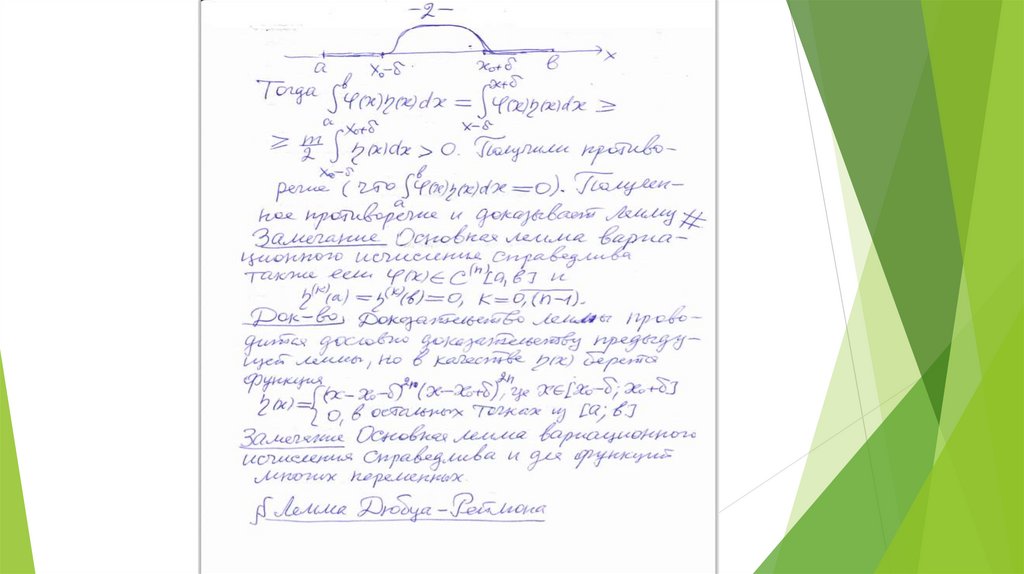 -2-
a x₀-δ x₀+δ в x
Тогда ∫ₐᵇ φ(x)η(x)dx = ∫ₓ₋δˣ⁺δ φ(x)η(x)dx ≥
≥ m/2 ∫ₓ₀₋δˣ⁰⁺δ η(x)dx > 0. Получили противо-
речие (что ∫ₐᵇ φ(x)η(x)dx = 0). Получен-
ное противоречие и доказывает лемму #
Замечание Основная лемма вариа-
ционного исчисления справедлива
также если φ(x) ∈ C⁽ⁿ⁾[a, в] и
η⁽ᵏ⁾(a) = η⁽ᵏ⁾(в) = 0, k = 0,(n-1).
Док-во, Доказательство леммы прово-
дится дословно доказательству предыду-
щей леммы, но в качестве η(x) берется
функция
η(x) = { (x-x₀-δ)²ⁿ(x-x₀+δ)²ⁿ, где x∈[x₀-δ; x₀+δ]
0, в остальных точках из [a; в]
Замечание Основная лемма вариационного
исчисления справедлива и для функций
многих переменных.
§ Лемма Дюбуа-Реймона